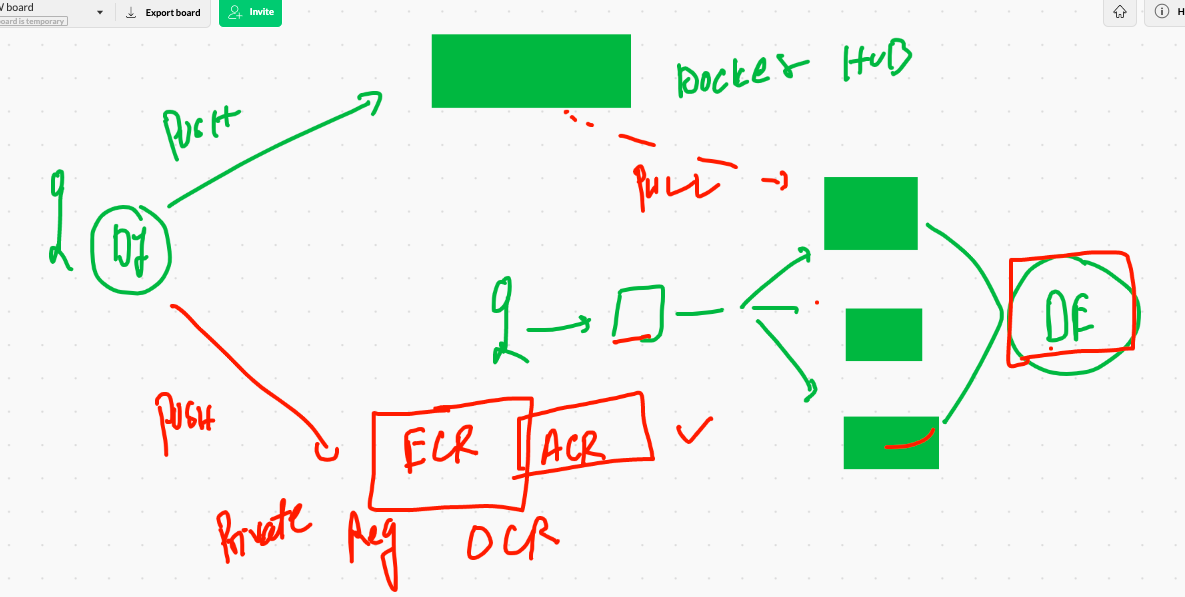 V board
board is temporary
Export board
Invite
H
Docker HUB
PUSH
PULL
DF
DE
PUSH
ECR
ACR
Private Reg OCR